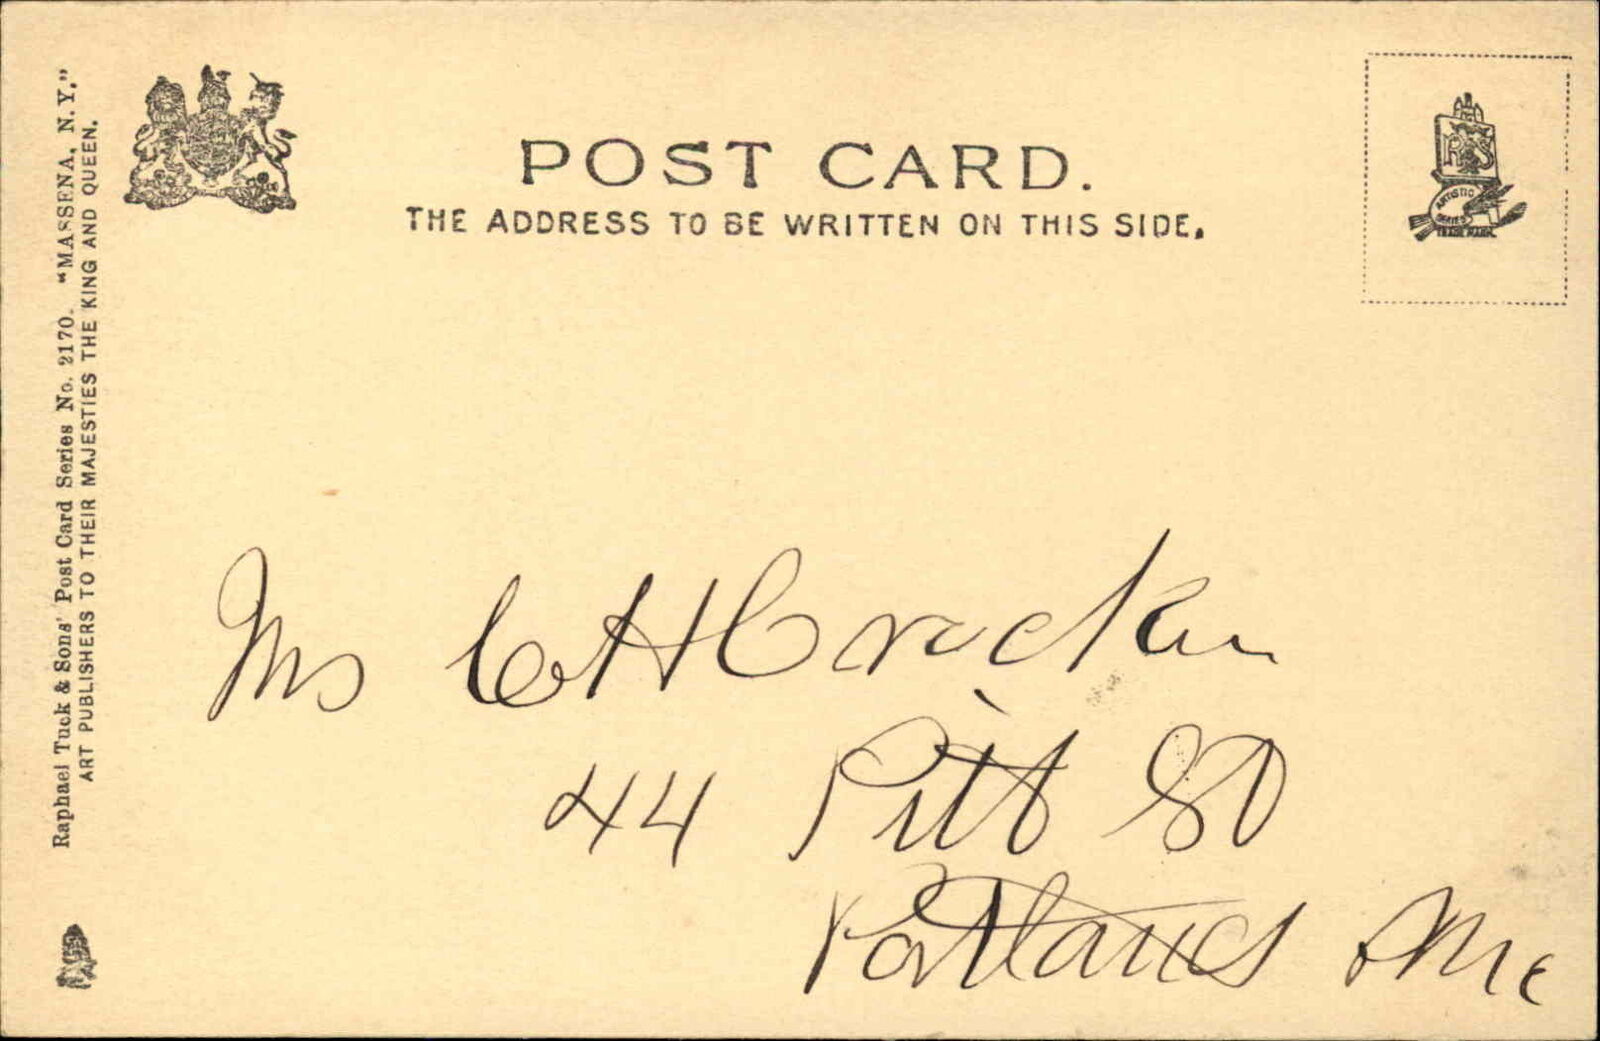 POST CARD.
THE ADDRESS TO BE WRITTEN ON THIS SIDE.
Raphael Tuck & Sons' Post Card Series No. 2170. "MASSENA, N.Y."
ART PUBLISHERS TO THEIR MAJESTIES THE KING AND QUEEN.
ARTISTIC
SERIES
TRADE MARK.
Mrs C H Crocker
44 Pitt St
Portland Me